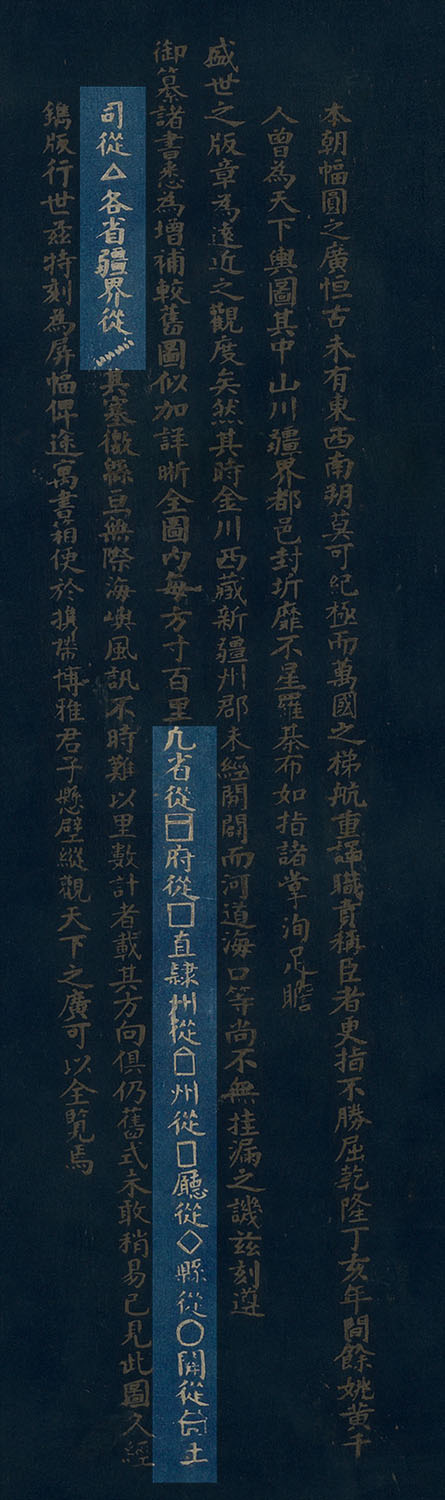 本朝幅圓之廣恒古未有東西南朔莫可紀極而萬國之梯航重譯職貢稱臣者更指不勝屈乾隆丁亥年間餘姚黄千
人曾為天下輿圖其中山川疆界都邑封圻靡不星羅棊布如指諸掌洵足瞻
盛世之版章為遠近之觀度矣然其時金川西藏新疆州郡未經開闢而河道海口等尚不無挂漏之譏兹刻遵
御纂諸書悉為增補較舊圖似加詳晰全圖內每方寸百里凢省從囗府從□直隸州從⌂州從▯廳從◇縣從○關從台土
司從△各省疆界從……其塞徼綿亘無際海嶼風訊不時難以里數計者載其方向俱仍舊式未敢稍易已見此圖久經
鐫版行世茲特刻為屏幅俾途寓書箱便於攜帶博雅君子懸壁縱觀天下之廣可以全覽焉